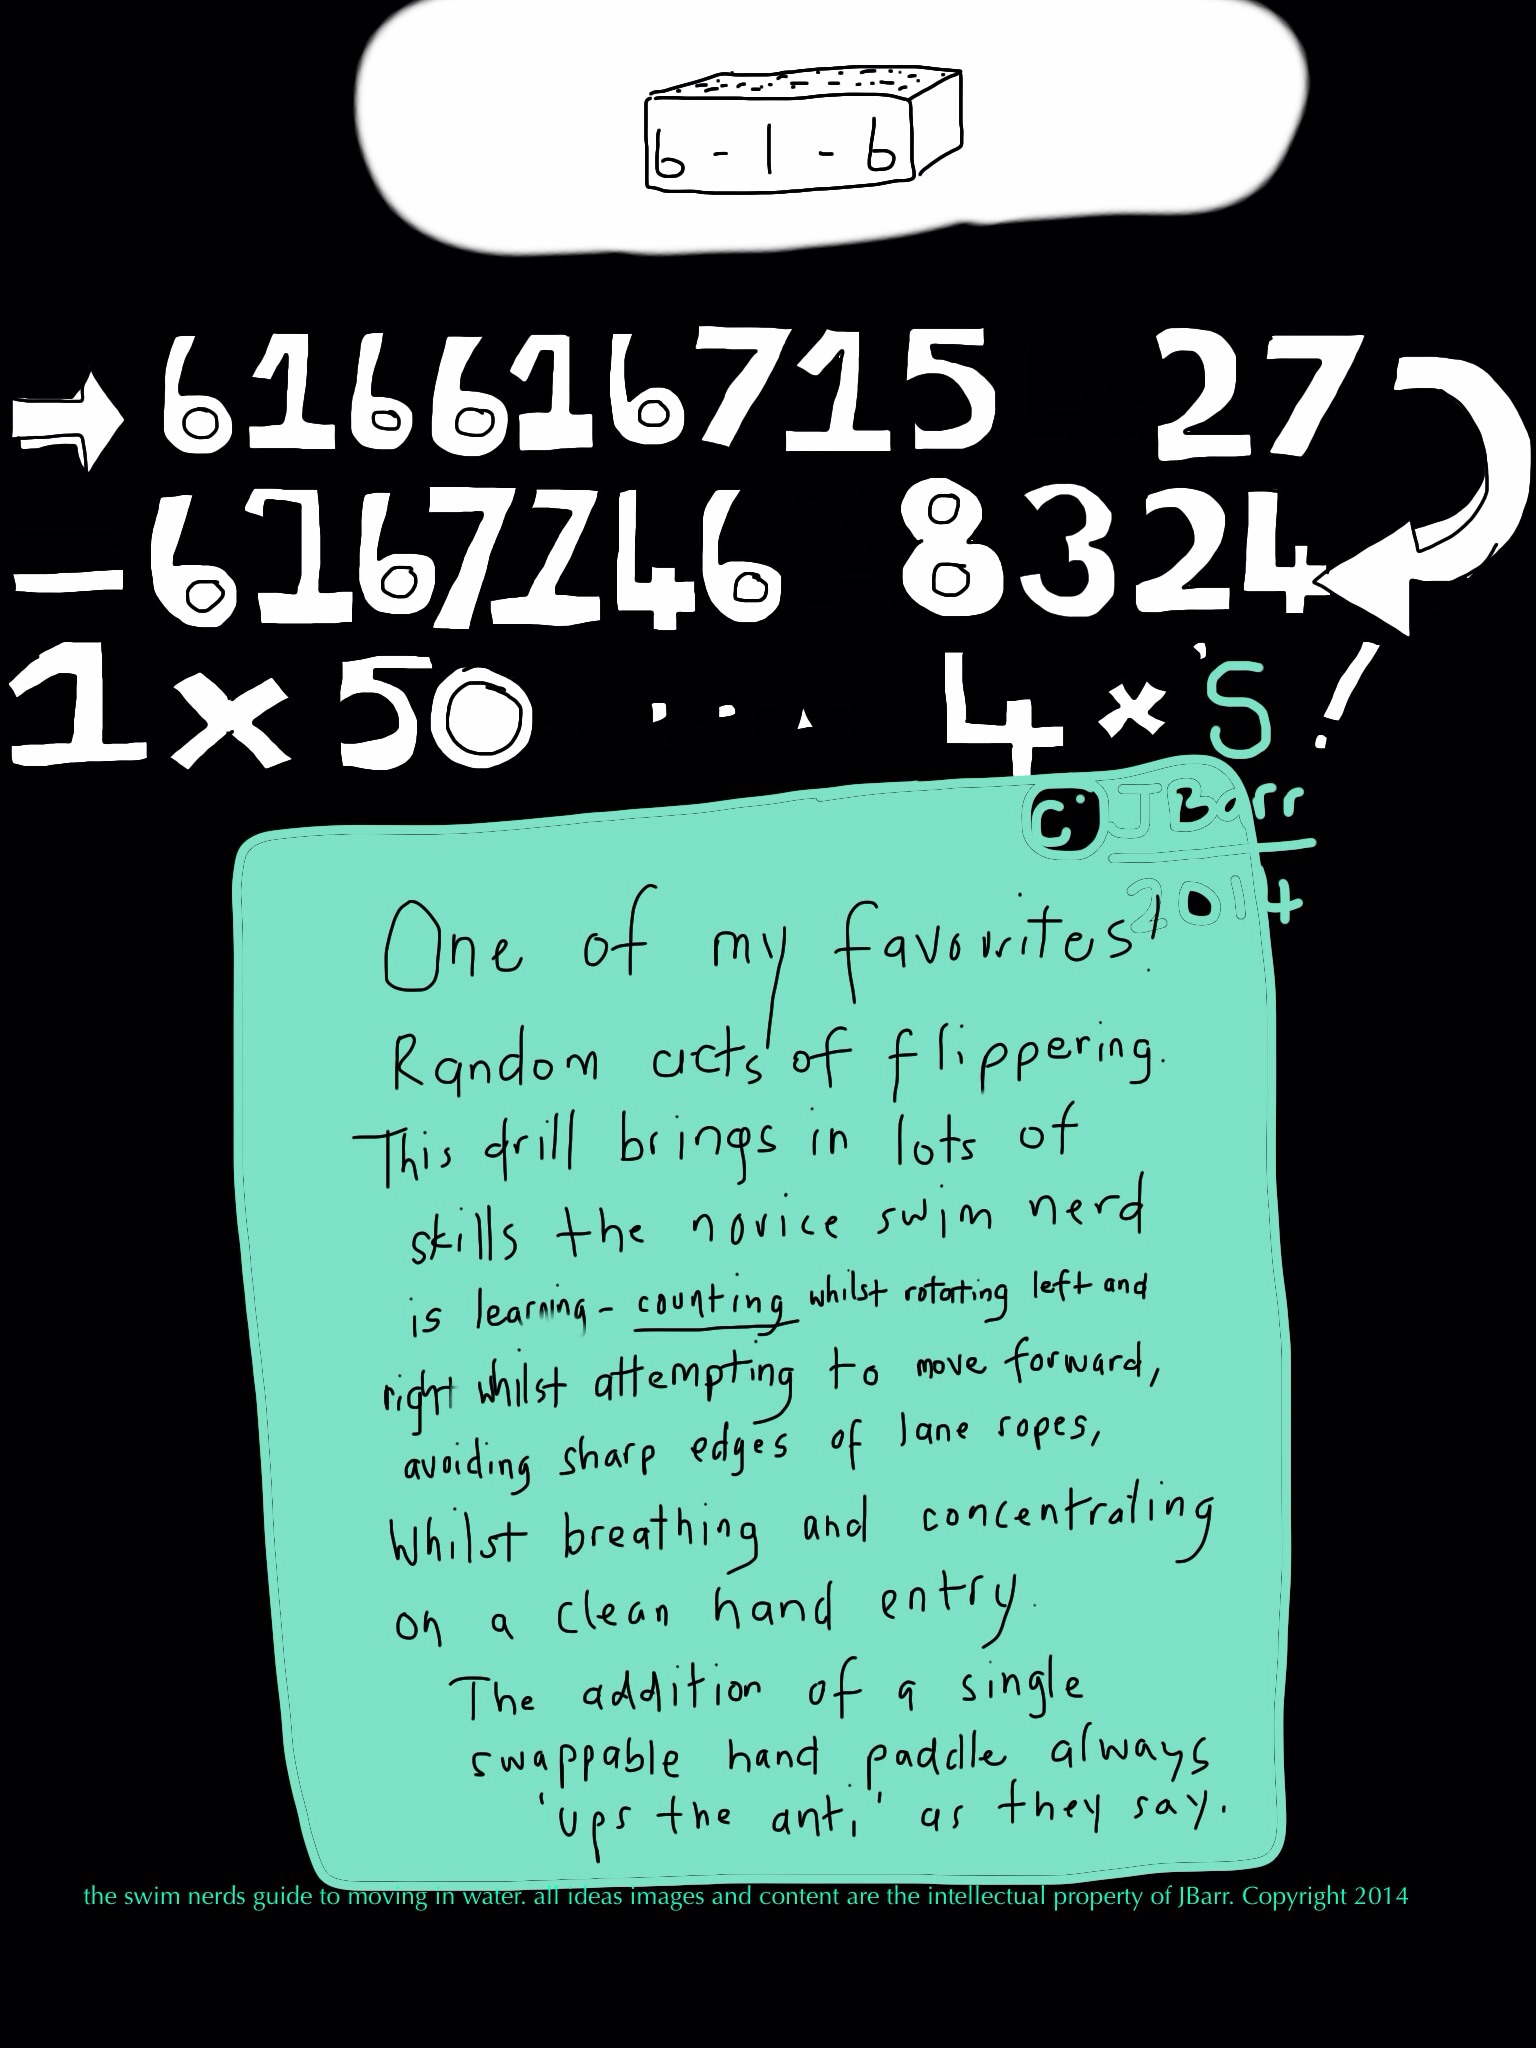 6 - 1 - 6
616616715 27
- 6167146 8324
1 x 50 ... 4 x 's !
C JBarr
2014
One of my favourites!
Random acts of flippering.
This drill brings in lots of
skills the novice swim nerd
is learning - counting whilst rotating left and
right whilst attempting to move forward,
avoiding sharp edges of lane ropes,
Whilst breathing and concentrating
on a clean hand entry.
The addition of a single
swappable hand paddle always
'ups the anti' as they say.
the swim nerds guide to moving in water. all ideas images and content are the intellectual property of JBarr. Copyright 2014